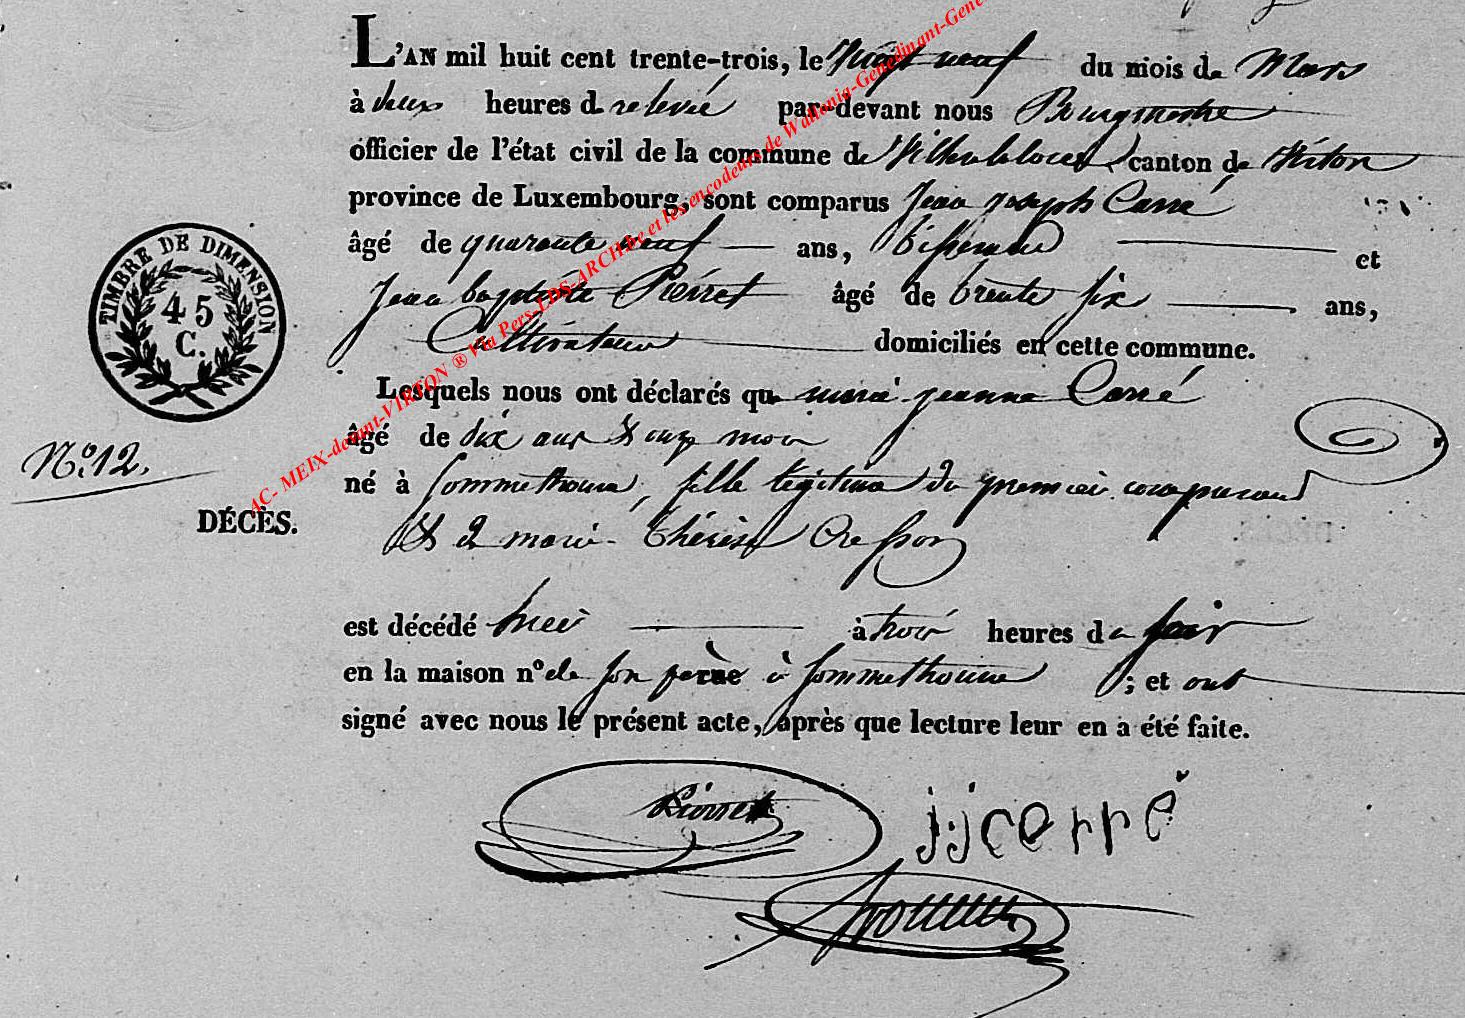 L'AN mil huit cent trente-trois, le Vingt neuf du mois de Mars
à deux heures de relevée par-devant nous Bourgmestre
officier de l'état civil de la commune de Villers la loue, canton de Virton
province de Luxembourg, sont comparus Jean joseph Carré
âgé de quarante neuf ans, tisserand et
Jean baptiste Pierret âgé de trente six ans,
Cultivateur domiciliés en cette commune.
Lesquels nous ont déclarés que marie jeanne Carré
âgé de dix ans & onze mois
né à Sommethonne, fille légitime du premier comparant
& de marie Thérèse Cresson
est décédé hier à trois heures du soir
en la maison n° de son père à Sommethonne; et ont
signé avec nous le présent acte, après que lecture leur en a été faite.
TIMBRE DE DIMENSION
45
C.
N° 12.
DÉCÈS.
Pierret
jjcarré
AC- MEIX-devant-VIRTON ® Via Pers-LDS-ARCH.be et les encodeurs de Wallonia-Genedinant-Gene